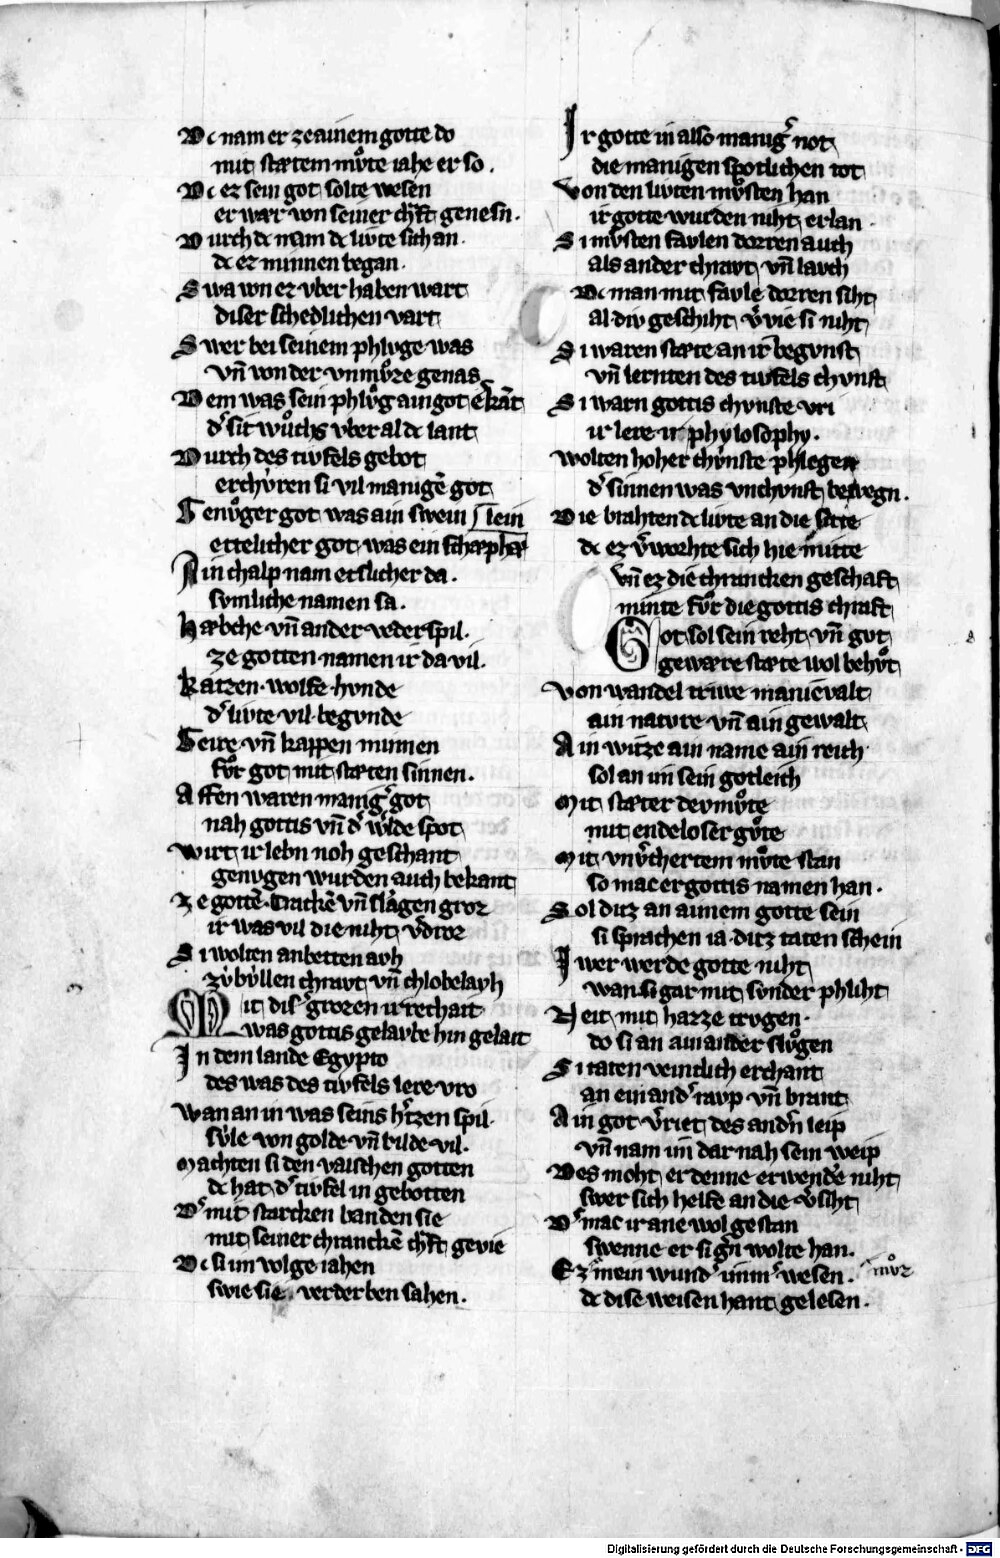 Dc nam er ze ainem gotte do
mit stætem mv̊te iahe er so.
Dc ez sein got solte wesen
er wær von seiner ch̄ft genesn̄.
Durch dc nam dc livte sich an.
dc ez minnen began.
Swa von ez vber haben wart
diser schedlichen vart
Swer bei seinem phlvge was
vn̄ von der vnmv̊ze genas
Dem was sein phlv̊g ain got erkāt
d͛ sit wůchs vber al dc lant
Durch des tivfels gebot
erchv̊ren si vil manigē got
Genv̊ger got was ain swein
ettelicher got was ein schæphærlein
Ain chalp nam etslicher da.
svmliche namen sa.
Hæbche vn̄ ander vederspil.
ze gotten namen ir da vil.
Katzen. wolfe. hvnde
d͛ livte vil begvnde
Geire vn̄ kappen minnen
fv̊r got mit stæten sinnen.
Affen waren manig͛ got
nah gottis vn̄ d͛ w͛lde spot
Wirt ir lebn noh geschant
genvgen wurden auch bekant
Ze gottē. Trackē vn̄ slāgen groz
ir was vil die niht v͛droz
Si wolten anbetten avh
zv̊bv̊llen chravt vn̄ chlobelavh
Mit dis͛ grozen irrechait
was gottis gelavbe hin gelait
In dem lande Egypto
des was des tivfels lere vro
Wan an in was seins h͛tzen spil.
sv̊le von golde vn̄ bilde vil.
Machten si den valschen gotten
dc hat d͛ tivfel in gebotten
D͛ mit starcken banden sie
mit seiner chranckē ch̄ft gevie
Dc si im volge iahen
swie sie verderben sahen.
Ir gotte in also manig͛ not
die manigen spotlichen tot
Von den livten mv̊sten han
ir gotte wurden niht erlan
Si mv̊sten favlen dorren auch
als ander chravt vn̄ lavch
Dc man mit favle dorren siht
al div geschiht v͛vie si niht
Si waren stæte an ir begvnst
vn̄ lernten des tivfels chvnst
Si warn gottis chvnste vri
ir lere ir phylosophy.
Wolten hoher chv̊nste phlegen
d͛ sinnen was vnchvnst bewegn.
Die brahten dc livte an die sitte
dc ez v͛worhte sich hie mitte
vn̄ ez die chrancken geschaft
minte fv̊r die gottis chraft
Got sol sein reht vn̄ gvt
gewære stæte wol behv̊t
Von wandel triwe manicvalt
ain natvre vn̄ ain gewalt
Ain witze ain name ain reich
sol an im sein gotleich
Mit stæter devmv̊te
mit endeloser gv̊te
Mit vnv͛chertem mv̊te stan
so mac er gottis namen han.
Sol ditz an ainem gotte sein
si sprachen ia ditz taten schein
Iwer werde gotte niht
wan si gar mit svnder phliht
Neit mit hazze trvgen.
do si an ainander slv̊gen
Si taten veintlich erchant
an ein and͛ ravp vn̄ brant
Ain got v͛riet des andn̄ leip
vn̄ nam im dar nah sein weip
Des moht er denne erwenden niht
swer sich helfe an die v͛siht
D͛ mac ir ane wol gestan
swenne er si g͛n wolte han.
Ez mv̊z mein wund͛ imm͛ wesen.
dc dise weisen hant gelesen.